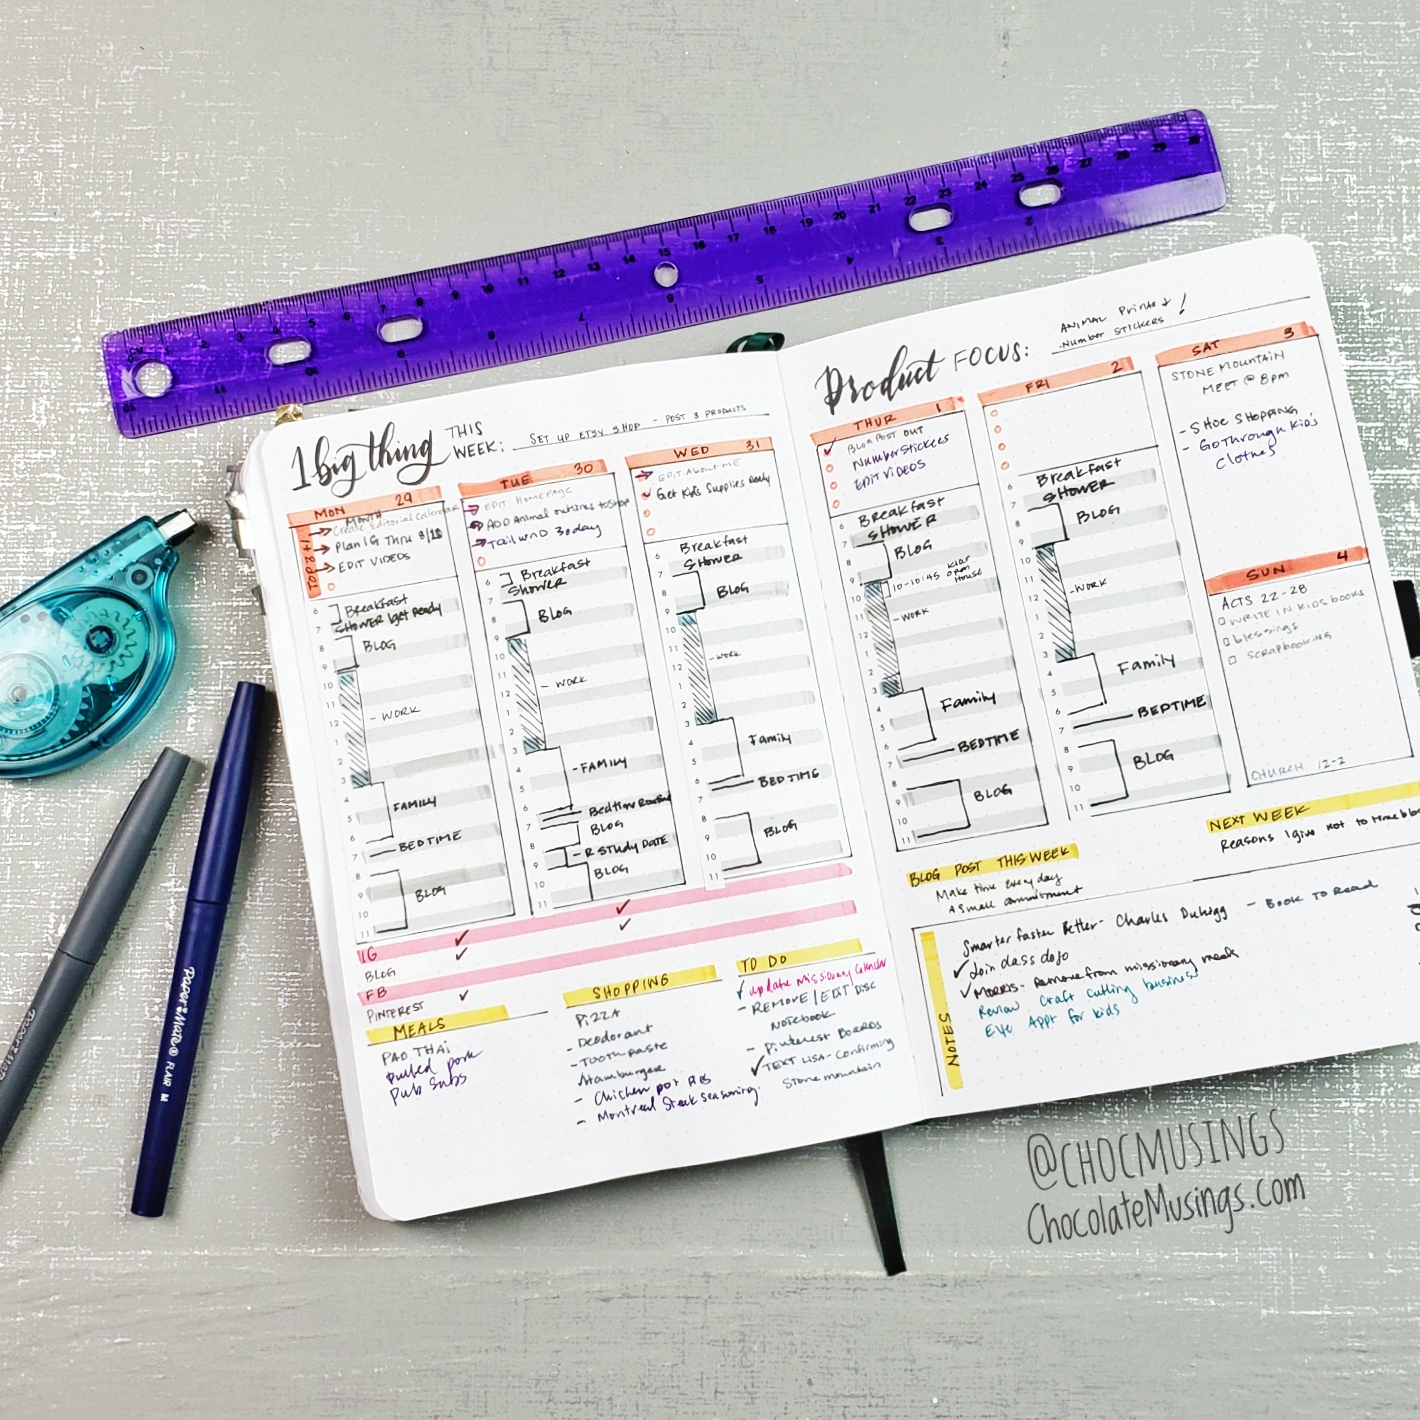 1 big thing THIS WEEK: SET UP ETSY SHOP - POST 3 PRODUCTS
MON 29
TOP 2+1
MONTH
Create Editorial Calendar
Plan IG Thru 9/18
EDIT VIDEOS
6
7
8
9
10
11
12
1
2
3
4
5
6
7
8
9
10
11
Breakfast
SHOWER/get Ready
BLOG
- WORK
FAMILY
- BEDTIME
BLOG
TUE 30
EDIT HOMEPAGE
ADD Animal outlines to Shop
Tailwind 30day
6
7
8
9
10
11
12
1
2
3
4
5
6
7
8
9
10
11
Breakfast
Shower
BLOG
- WORK
- FAMILY
Bedtime Routine
BLOG
- R STUDY DATE
BLOG
WED 31
EDIT About ME
Get Kids Supplies Ready
6
7
8
9
10
11
12
1
2
3
4
5
6
7
8
9
10
11
Breakfast
SHOWER
BLOG
- WORK
Family
BEDTIME
BLOG
IG
BLOG
FB
PINTEREST
MEALS
PAD THAI
Pulled pork
Pub Subs
SHOPPING
Pizza
- Deodorant
- Toothpaste
Hamburger
- Chicken pot
- Montreal Steak Seasoning
TO DO
update Missionary Calendar
- REMOVE/EDIT DISC
Notebook
- Pinterest Boards
TEXT LISA - Confirming
Stone mountain
Product FOCUS:
ANIMAL Prints +
Number STICKERS !
THUR 1
BLOG POST OUT
Number Stickers
EDIT VIDEOS
6
7
8
9
10
11
12
1
2
3
4
5
6
7
8
9
10
11
Breakfast
SHOWER
BLOG
10-10:45
House
- WORK
Family
BEDTIME
BLOG
FRI 2
6
7
8
9
10
11
12
1
2
3
4
5
6
7
8
9
10
11
Breakfast
SHOWER
BLOG
- WORK
Family
BEDTIME
BLOG
SAT 3
STONE MOUNTAIN
MEET @ 8pm
- SHOE SHOPPING
- Go Through Kids'
Clothes
SUN 4
ACTS 22-28
WRITE IN KIDS books
blessings
SCRAPBOOKING
CHURCH 12-2
BLOG POST THIS WEEK
Make time every day
A small commitment
NEXT WEEK
Reasons I give not to
NOTES
Smarter faster Better - Charles Duhigg - BOOK TO Read
Join class dojo
MORRIS - Remove from missionary meals
Review Craft Cutting business
Eye Appt for kids
Paper:Mate® FLAIR M
@CHOCMUSINGS
ChocolateMusings.com